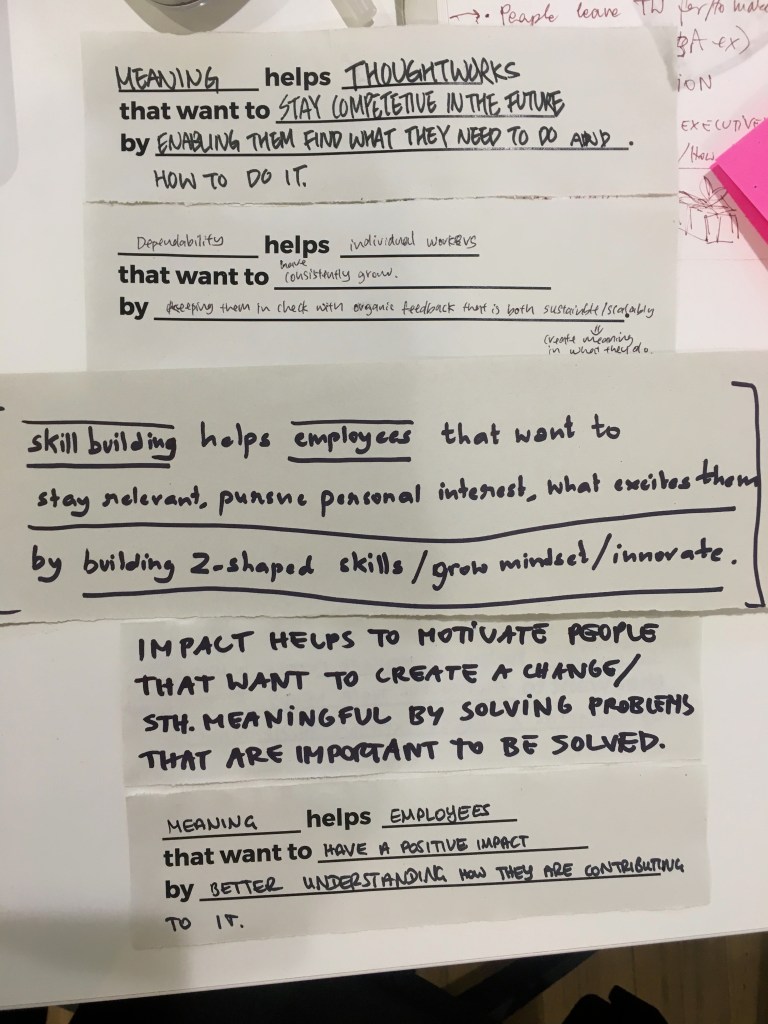 → • PEOPLE leave TW for/to make
EXECUTIVE
MEANING helps THOUGHTWORKS
that want to STAY COMPETETIVE IN THE FUTURE
by ENABLING THEM FIND WHAT THEY NEED TO DO AND .
HOW TO DO IT.
Dependability helps individual workers
have
that want to consistently grow.
by keeping them in check with organic feedback that is both sustainble/scalably
create meaning
in what they do.
skill building helps employees that want to
stay relevant, pursue personal interest, what excites them
by building Z-shaped skills/grow mindset/innovate.
IMPACT HELPS TO MOTIVATE PEOPLE
THAT WANT TO CREATE A CHANGE/
STH. MEANINGFUL BY SOLVING PROBLEMS
THAT ARE IMPORTANT TO BE SOLVED.
MEANING helps EMPLOYEES
that want to HAVE A POSITIVE IMPACT
by BETTER UNDERSTANDING HOW THEY ARE CONTRIBUTING
TO IT.